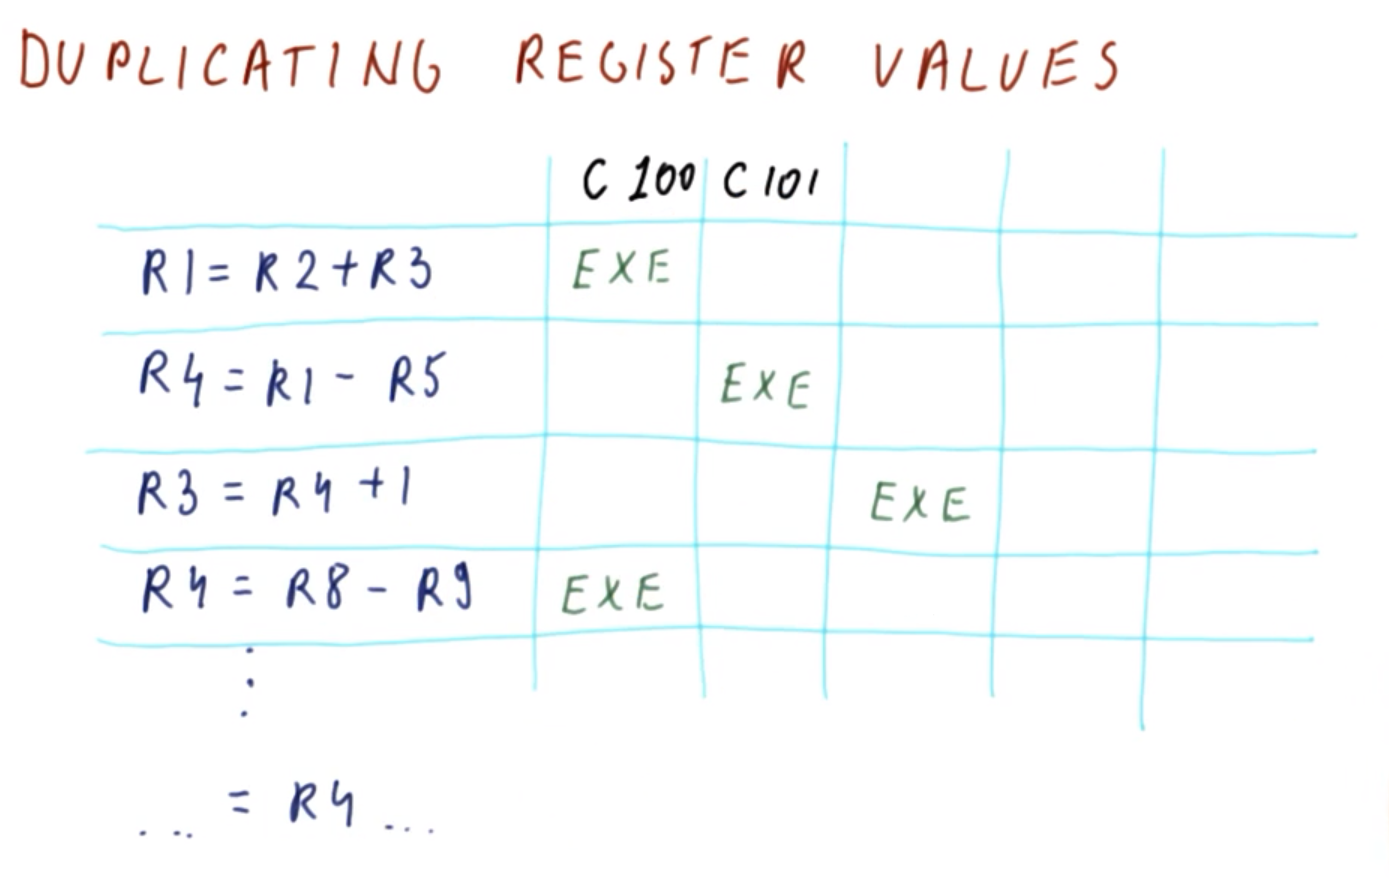 DUPLICATING REGISTER VALUES
C 100 C 101
R1 = R2 + R3 EXE
R4 = R1 - R5 EXE
R3 = R4 + 1 EXE
R4 = R8 - R9 EXE
⋮
... = R4 ...